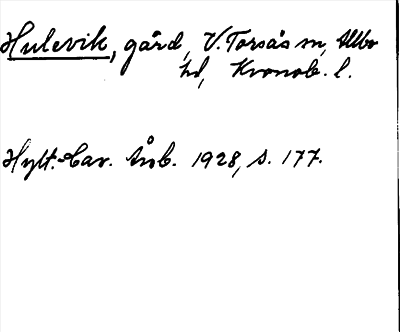 Hulevik, gård, V. Torsås sn, Allbo
hd, Kronob. l.
Hylt.-Cav. Årsb. 1928, s. 177.